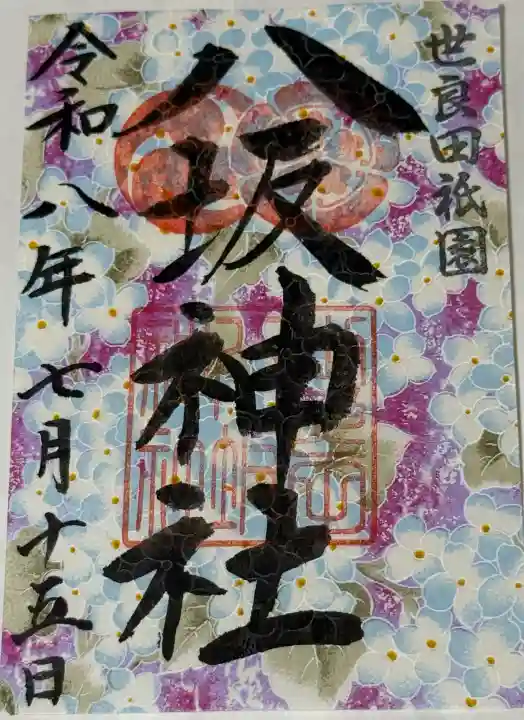 世良田祇園
八坂神社
令和八年七月十五日